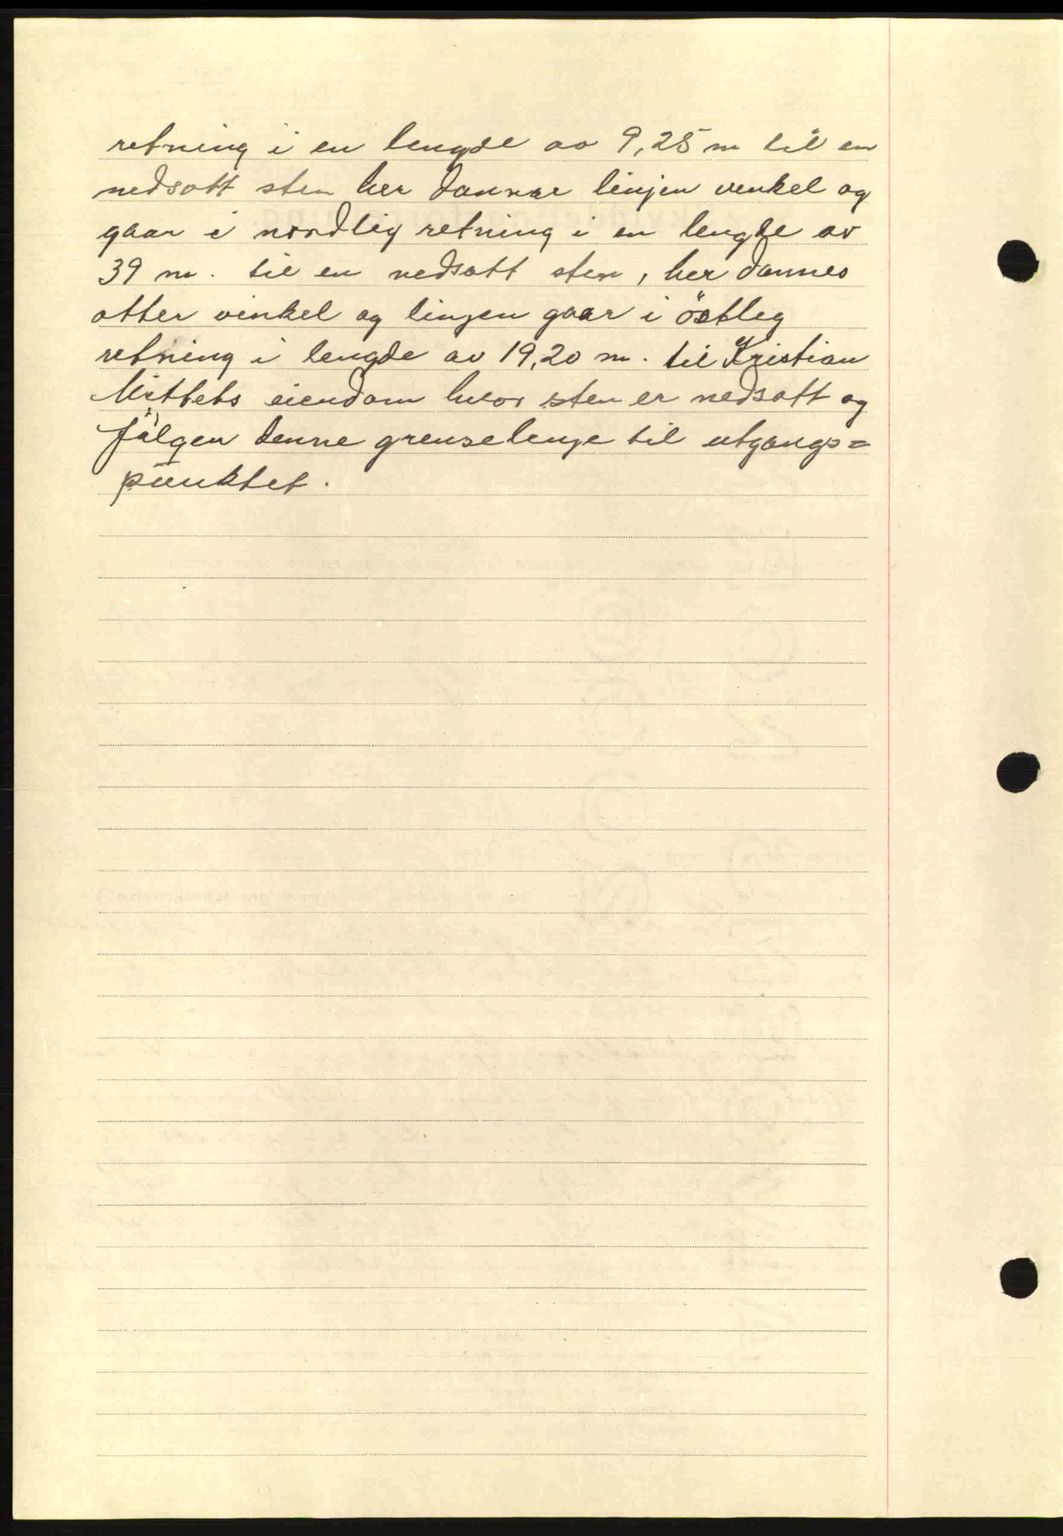 retning i en lengde av 9,25 m til en
nedsatt sten her danner linjen venkel og
gaar i nordlig retning i en lengde av
39 m. til en nedsatt sten, her dannes
atter vinkel og linjen gaar i östleg
retning i lengde av 19,20 m. til Kristian
Mittets eiendom hvor sten er nedsatt og
fölgen denne grenselenje til utgangs=
punktet.